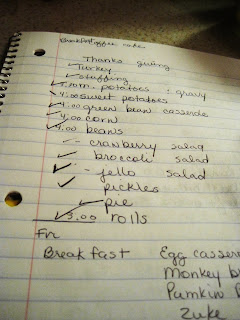 coffee cake
Thanks giving
Turkey
stuffing
m. potatoes : gravy
4:00 sweet potatoes
4:00 green bean casserole
4:00 corn
4:00 beans
- cranberry salad
broccoli salad
- jello salad
pickles
pie
5:00 rolls
Fri
Breakfast Egg casser
Monkey b
Pumkin B
Zuke